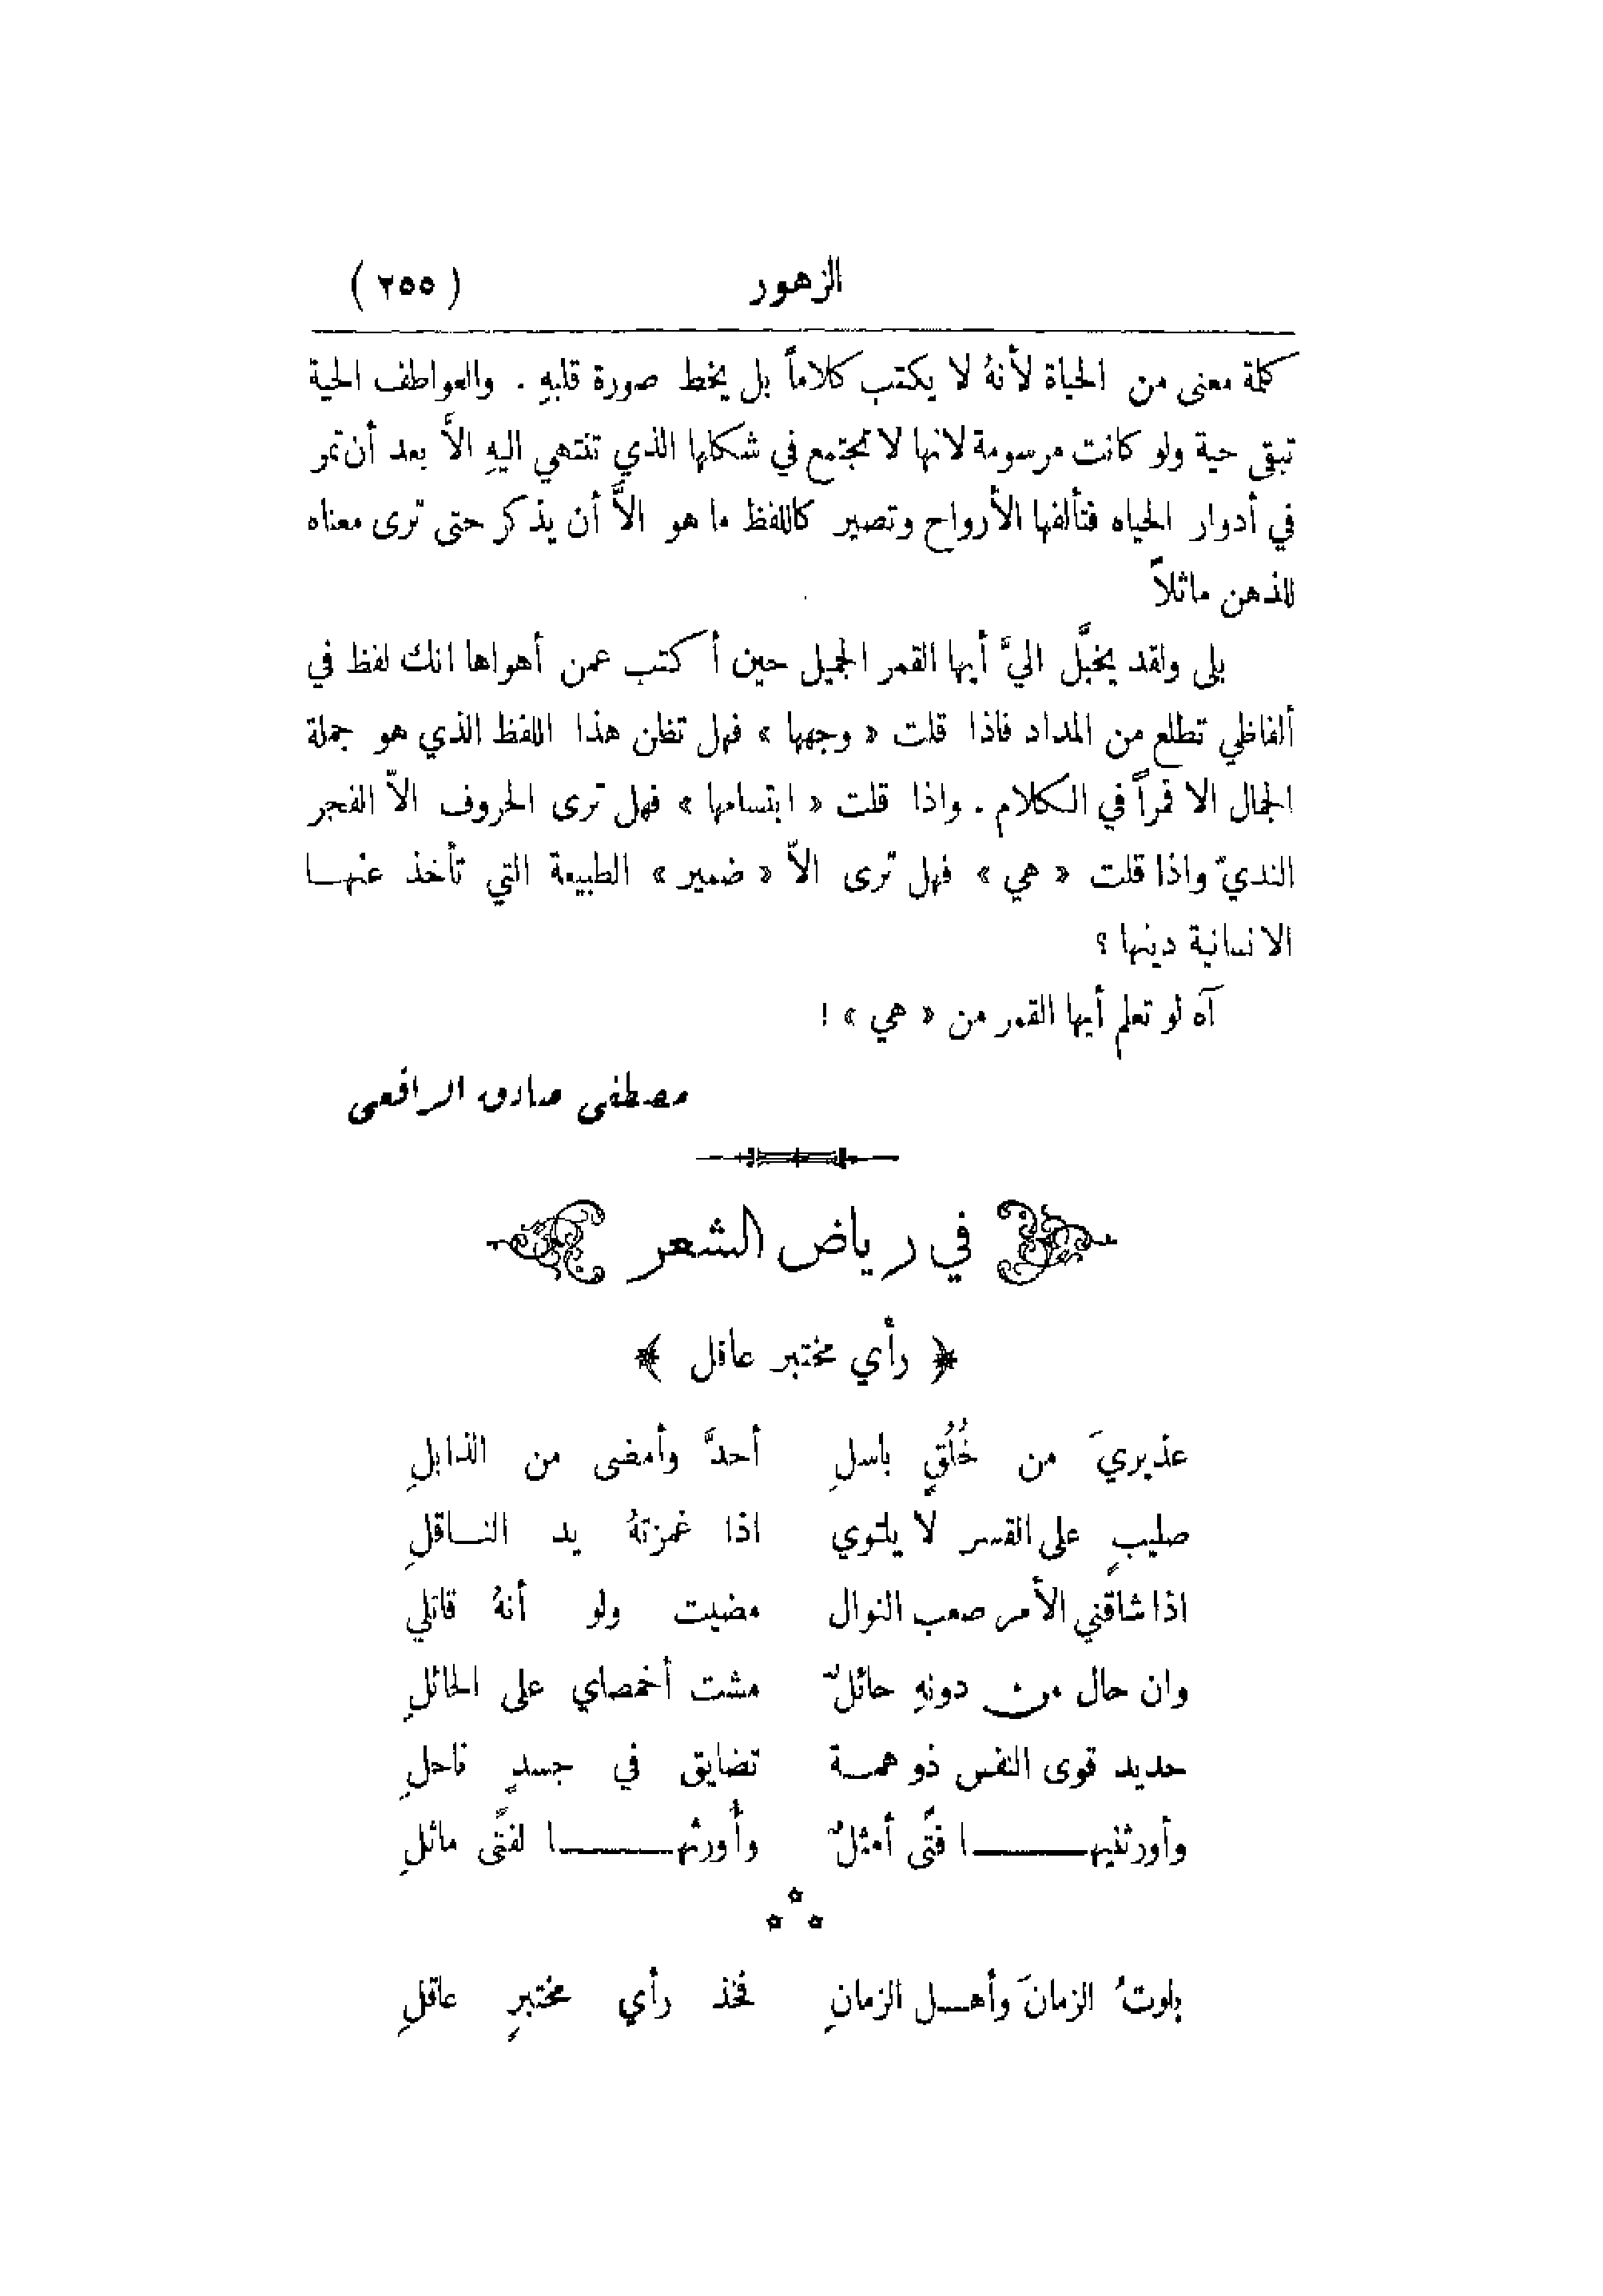 الزهور (٢٥٥)
كلمة معنى من الحياة لأنهُ لا يكتب كلاماً بل يخط صورة قلبهِ . والعواطف الحية
تبقى حية ولو كانت مرسومة لانها لا تجتمع في شكلها الذي تنتهي اليهِ الاَّ بعد أن تمر
في أدوار الحياه فتألفها الأرواح وتصير كاللفظ ما هو الاَّ أن يذكر حتى ترى معناه
للذهن ماثلاً
بلى ولقد يخيَّل اليَّ أيها القمر الجميل حين أكتب عمن أهواها انك لفظ في
ألفاظي تطلع من المداد فاذا قلت « وجهها » فهل تظن هذا اللفظ الذي هو جملة
الجمال الا قمراً في الكلام . واذا قلت « ابتسامها » فهل ترى الحروف الاّ الفجر
النديّ واذا قلت « هي » فهل ترى الاّ « ضمير » الطبيعة التي تأخذ عنهـا
الانسانية دينها ؟
آه لو تعلم أيها القمر من « هي » !
مصطفى صادق الرافعى
في رياض الشعر
﴿ رأي مختبر عاقل ﴾
عذيريَ من خُلُقٍ باسلِ أحدَّ وأمضى من الذابلِ
صليبٍ على القسر لا يلتوي اذا غمزتهُ يد النـاقلِ
اذا شاقني الأمر صعب النوال مضيت ولو أنهُ قاتلي
وان حال من دونهِ حائلٌ مشت أخمصاي على الحائلِ
حديد قوى النفس ذو همـة تضايق في جسدٍ ناحلِ
وأورثنيهـــا فتًى أمثلٌ وأُورثهـــا لفتًى ماثلِ
* * *
بلوتُ الزمانَ وأهـل الزمانِ فخذ رأي مختبرٍ عاقلِ